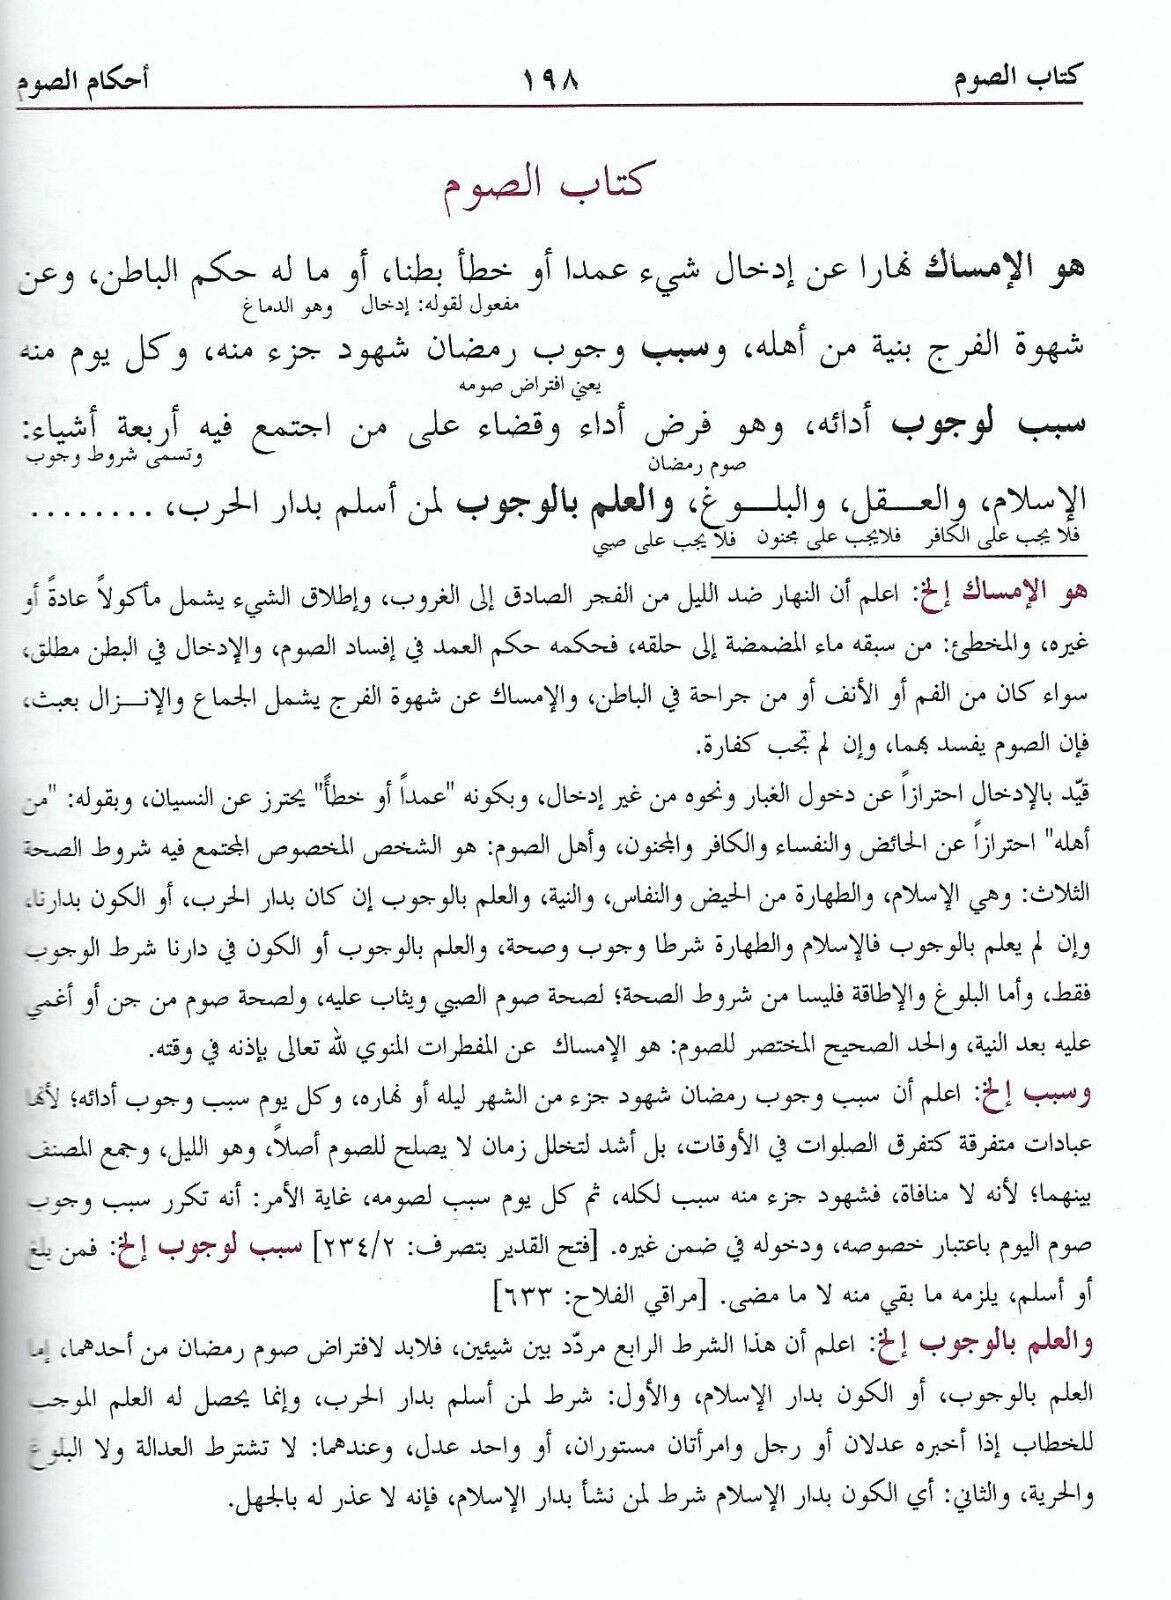 كتاب الصوم ١٩٨ أحكام الصوم
كتاب الصوم
هو الإمساك نهارا عن إدخال شيء عمدا أو خطأ بطنا، أو ما له حكم الباطن، وعن
مفعول لقوله: إدخال وهو الدماغ
شهوة الفرج بنية من أهله، وسبب وجوب رمضان شهود جزء منه، وكل يوم منه
يعني افتراض صومه
سبب لوجوب أدائه، وهو فرض أداء وقضاء على من اجتمع فيه أربعة أشياء:
صوم رمضان وتسمى شروط وجوب
الإسلام، والعـقل، والبلـوغ، والعلم بالوجوب لمن أسلم بدار الحرب، ........
فلا يجب على الكافر فلايجب على مجنون فلا يجب على صبي
هو الإمساك إلخ: اعلم أن النهار ضد الليل من الفجر الصادق إلى الغروب، وإطلاق الشيء يشمل مأكولاً عادةً أو
غيره، والمخطئ: من سبقه ماء المضمضة إلى حلقه، فحكمه حكم العمد في إفساد الصوم، والإدخال في البطن مطلق،
سواء كان من الفم أو الأنف أو من جراحة في الباطن، والإمساك عن شهوة الفرج يشمل الجماع والإنـزال بعبث،
فإن الصوم يفسد بهما، وإن لم تجب كفارة.
قيّد بالإدخال احترازاً عن دخول الغبار ونحوه من غير إدخال، وبكونه "عمداً أو خطأً" يحترز عن النسيان، وبقوله: "من
أهله" احترازاً عن الحائض والنفساء والكافر والمجنون، وأهل الصوم: هو الشخص المخصوص المجتمع فيه شروط الصحة
الثلاث: وهي الإسلام، والطهارة من الحيض والنفاس، والنية، والعلم بالوجوب إن كان بدار الحرب، أو الكون بدارنا،
وإن لم يعلم بالوجوب فالإسلام والطهارة شرطا وجوب وصحة، والعلم بالوجوب أو الكون في دارنا شرط الوجوب
فقط، وأما البلوغ والإطاقة فليسا من شروط الصحة؛ لصحة صوم الصبي ويثاب عليه، ولصحة صوم من جن أو أغمي
عليه بعد النية، والحد الصحيح المختصر للصوم: هو الإمساك عن المفطرات المنوي لله تعالى بإذنه في وقته.
وسبب إلخ: اعلم أن سبب وجوب رمضان شهود جزء من الشهر ليله أو نهاره، وكل يوم سبب وجوب أدائه؛ لأنها
عبادات متفرقة كتفرق الصلوات في الأوقات، بل أشد لتخلل زمان لا يصلح للصوم أصلاً، وهو الليل، وجمع المصنف
بينهما؛ لأنه لا منافاة، فشهود جزء منه سبب لكله، ثم كل يوم سبب لصومه، غاية الأمر: أنه تكرر سبب وجوب
صوم اليوم باعتبار خصوصه، ودخوله في ضمن غيره. [فتح القدير بتصرف: ٢٣٤/٢] سبب لوجوب إلخ: فمن بلغ
أو أسلم، يلزمه ما بقي منه لا ما مضى. [مراقي الفلاح: ٦٣٣]
والعلم بالوجوب إلخ: اعلم أن هذا الشرط الرابع مردّد بين شيئين، فلابد لافتراض صوم رمضان من أحدهما، إما
العلم بالوجوب، أو الكون بدار الإسلام، والأول: شرط لمن أسلم بدار الحرب، وإنما يحصل له العلم الموجب
للخطاب إذا أخبره عدلان أو رجل وامرأتان مستوران، أو واحد عدل، وعندهما: لا تشترط العدالة ولا البلوغ
والحرية، والثاني: أي الكون بدار الإسلام شرط لمن نشأ بدار الإسلام، فإنه لا عذر له بالجهل.